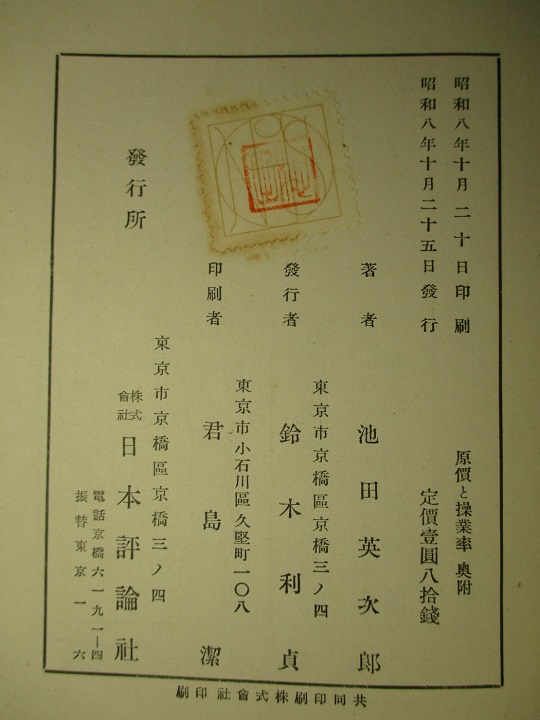 昭和八年十月二十日印刷
昭和八年十月二十五日發行
原價と操業率 奧附
定價壹圓八拾錢
著者 池田英次郎
東京市京橋區京橋三ノ四
發行者 鈴木利貞
東京市小石川區久堅町一〇八
印刷者 君島潔
發行所
東京市京橋區京橋三ノ四
株式會社 日本評論社
電話京橋六一九一—四
振替東京一六
共同印刷株式會社印刷